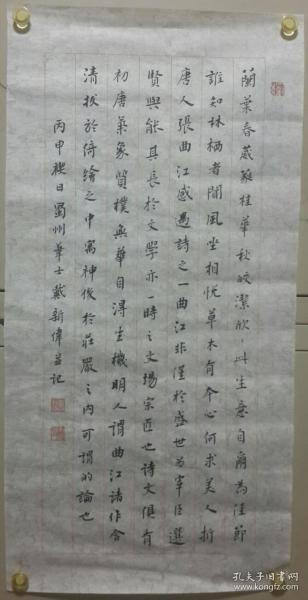 蘭葉春葳蕤桂華秋皎潔欣此生意自爾為佳節
誰知林栖者聞風坐相悅草木有本心何求美人折
唐人張曲江感遇詩之一曲江非僅於盛世為宰臣選
賢與能其長於文學亦一時之文場宗匠也詩文俱有
初唐氣象質樸無華自淂生機明人謂曲江諸作含
清拔於綺繪之中寓神俊於莊嚴之內可謂的論也
丙申禊日蜀州筆士戴新偉并记
孔夫子旧书网